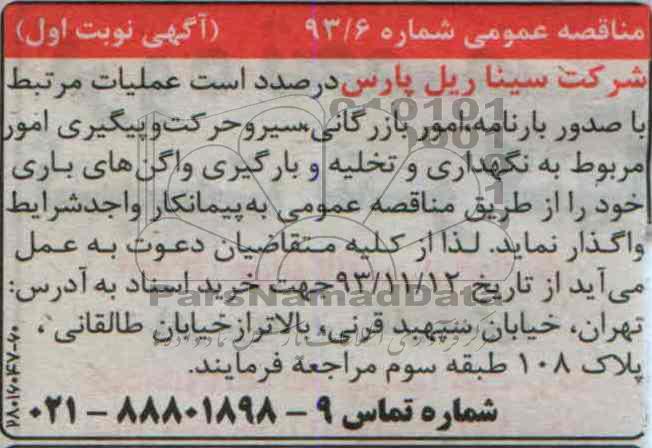 مناقصه عمومی شماره ۹۳/۶ (آگهی نوبت اول)
شرکت سینا ریل پارس درصدد است عملیات مرتبط
با صدور بارنامه،امور بازرگانی،سیروحرکت‌وپیگیری امور
مربوط به نگهداری و تخلیه و بارگیری واگن‌های باری
خود را از طریق مناقصه عمومی به‌پیمانکار واجدشرایط
واگذار نماید. لذا از کلیه متقاضیان دعوت به عمل
می‌آید از تاریخ ۹۳/۱۱/۱۲ جهت خرید اسناد به آدرس:
تهران، خیابان سپهبد قرنی، بالاتر از خیابان طالقانی،
پلاک ۱۰۸ طبقه سوم مراجعه فرمایند.
شماره تماس ۹ – ۸۸۸۰۱۸۹۸ – ۰۲۱
ParsNamadData